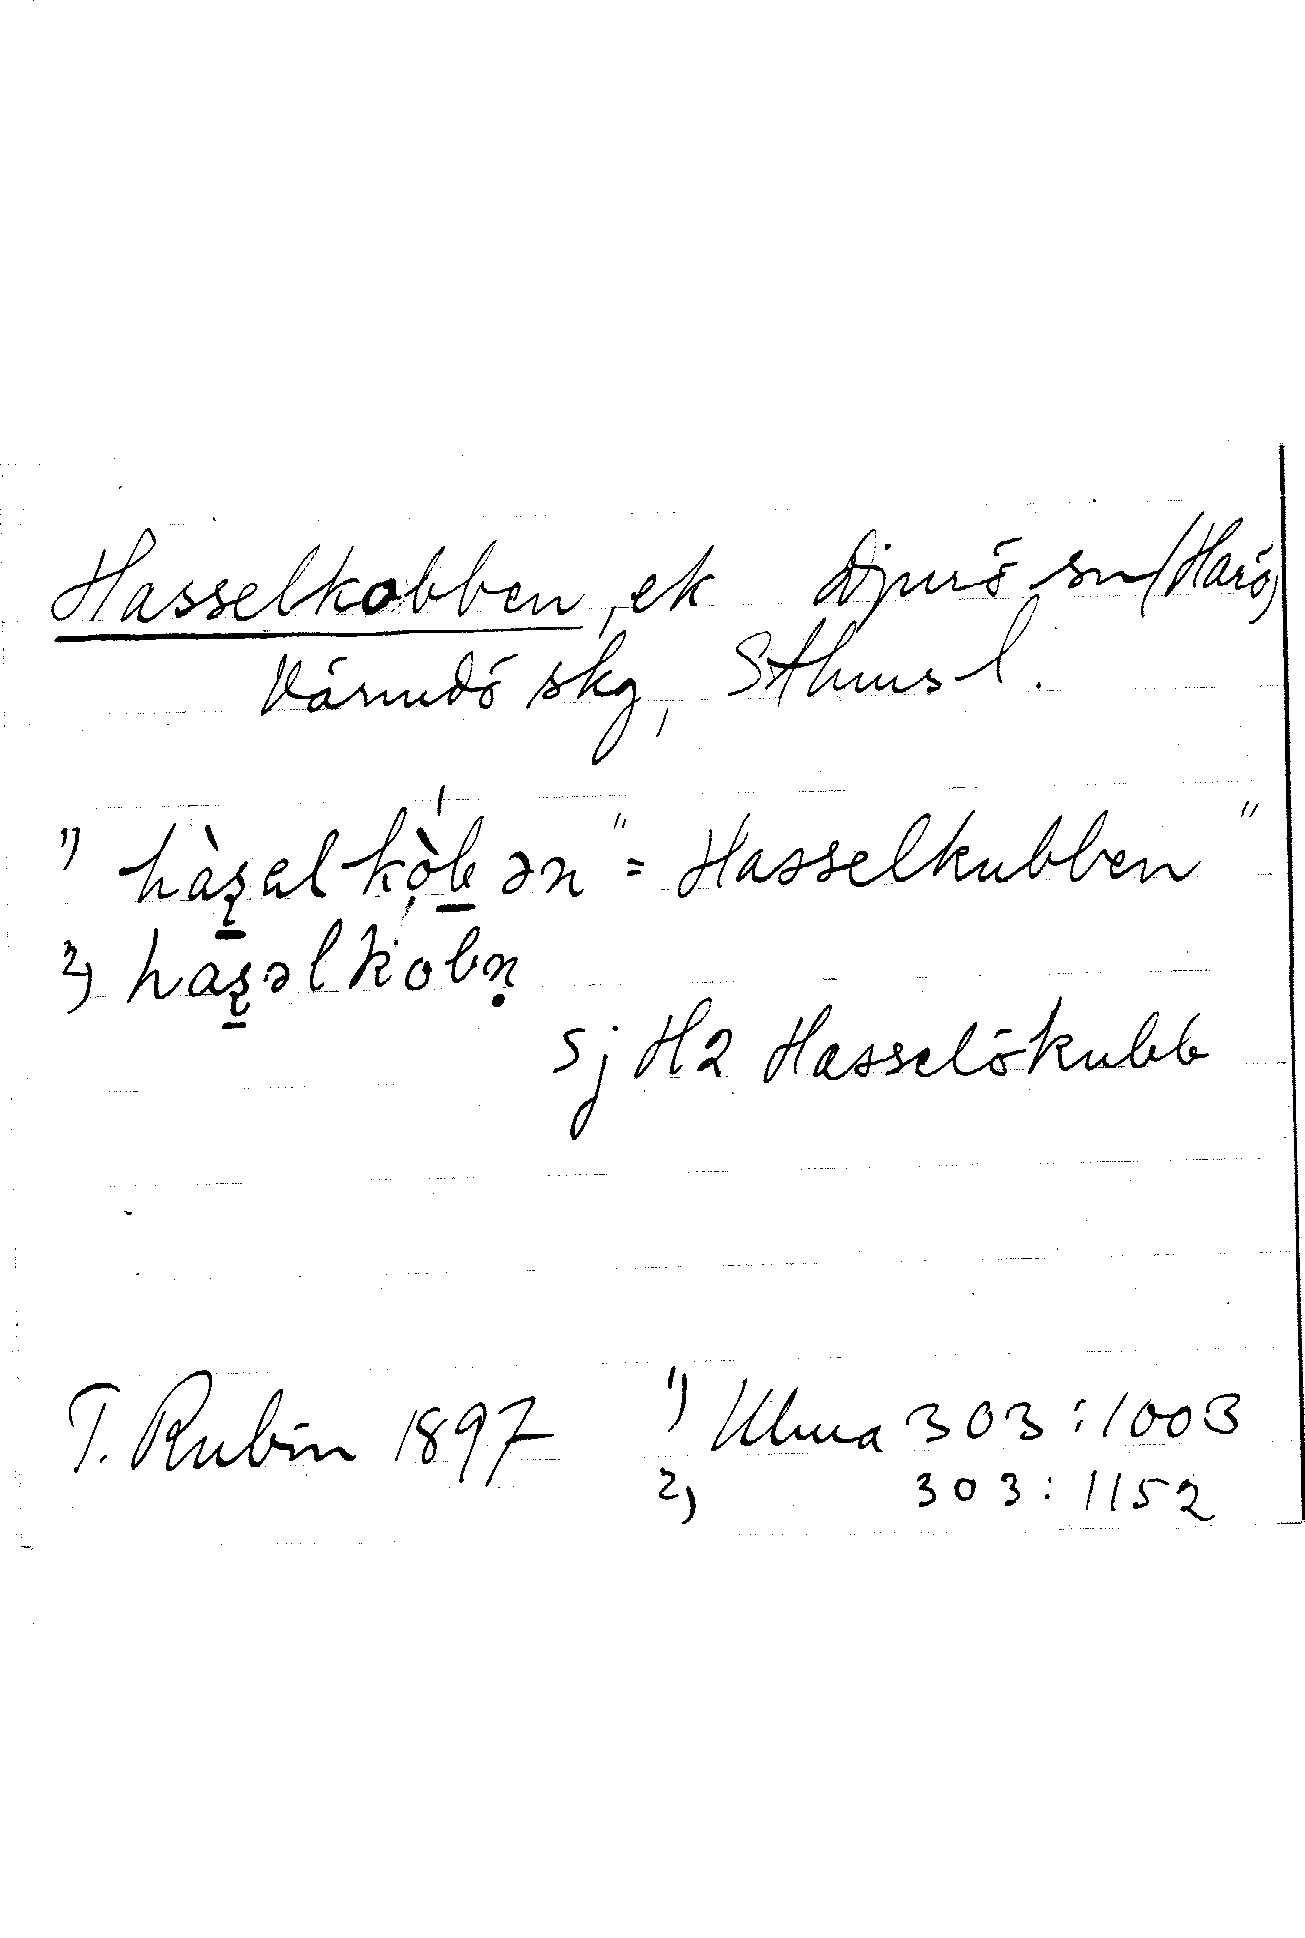 Hasselkobben, ek Djurö sn (Harö)
Värmdö skg, Sthms l.
1) hàs̱əlkòḇən "= Hasselkubben"
2) has̱əlkobṇ
Sj H2 Hasselökubb
T. Rubin 1897 1) Ulma 303:1003
2) 303:1152